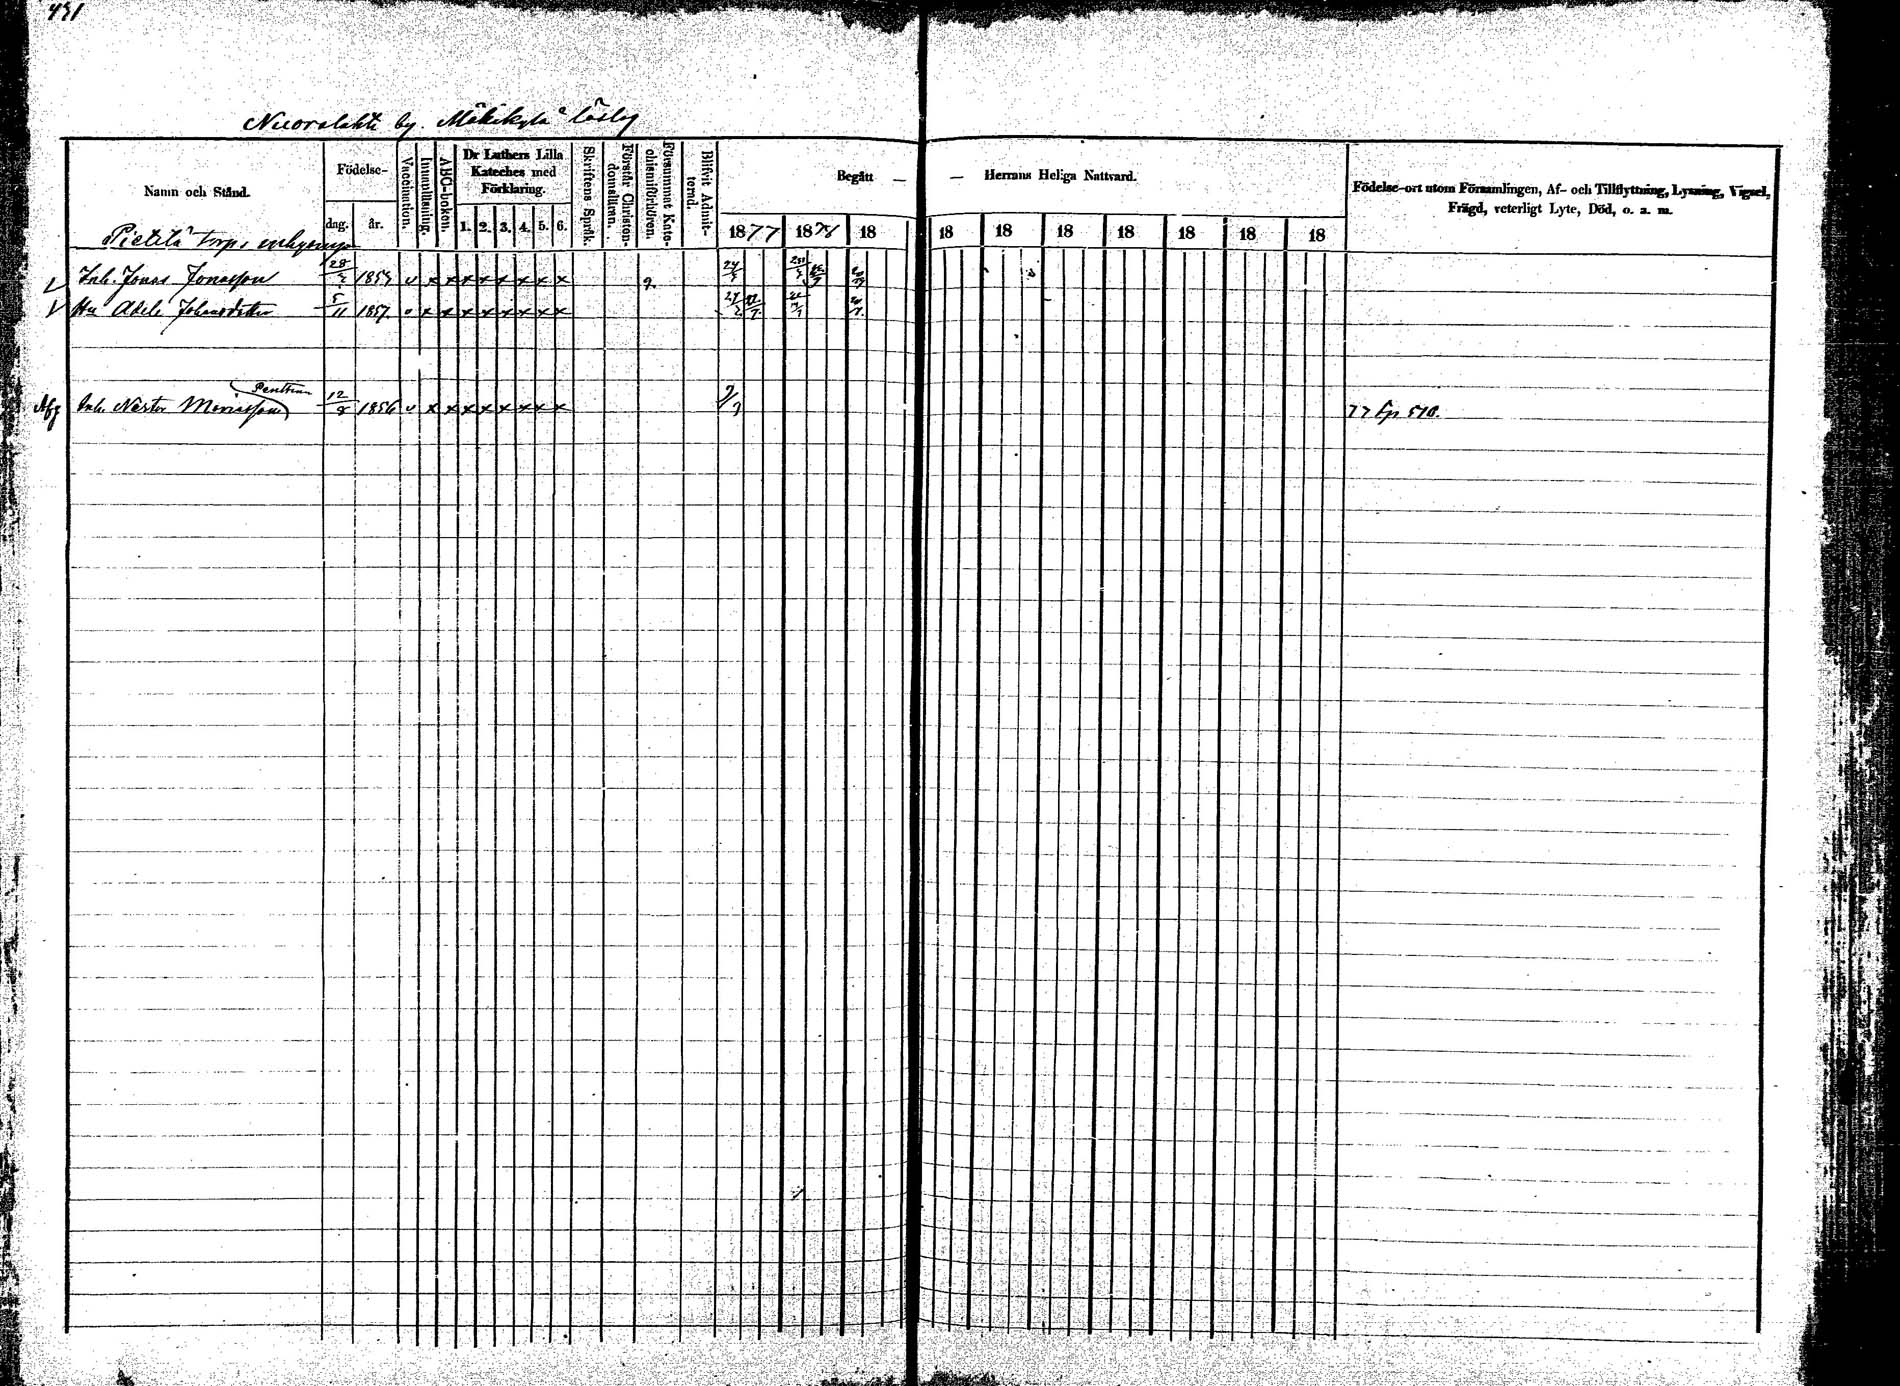 431
Nuoralahti by. Mäkikylä
Namn och Stånd.
Födelse-
dag.
år.
Vaccination.
Innanläsning.
ABC-boken.
Dr Luthers Lilla
Kateches med
Förklaring.
1. 2. 3. 4. 5. 6.
Skriftens Språk.
Förstår Christen-
domsläran.
Försummat Kate-
chismiförhören.
Blifvit Admit-
terad.
Begått — — Herrans Heliga Nattvard.
1877 1878 18 18 18 18 18 18 18 18
Födelse-ort utom Församlingen, Af- och Tillflyttning, Lysning, Vigsel,
Frägd, veterligt Lyte, Död, o. a. m.
Pietilä torps
Inh. Jonas Jonasson 28 v x x x x x x x x 2.
Hu Adele Johansdotter 5/11 1857 x x x x x x x x
Afg Inh. Nestor 12/8 1856 v x x x x x x x x 77 fp 510.